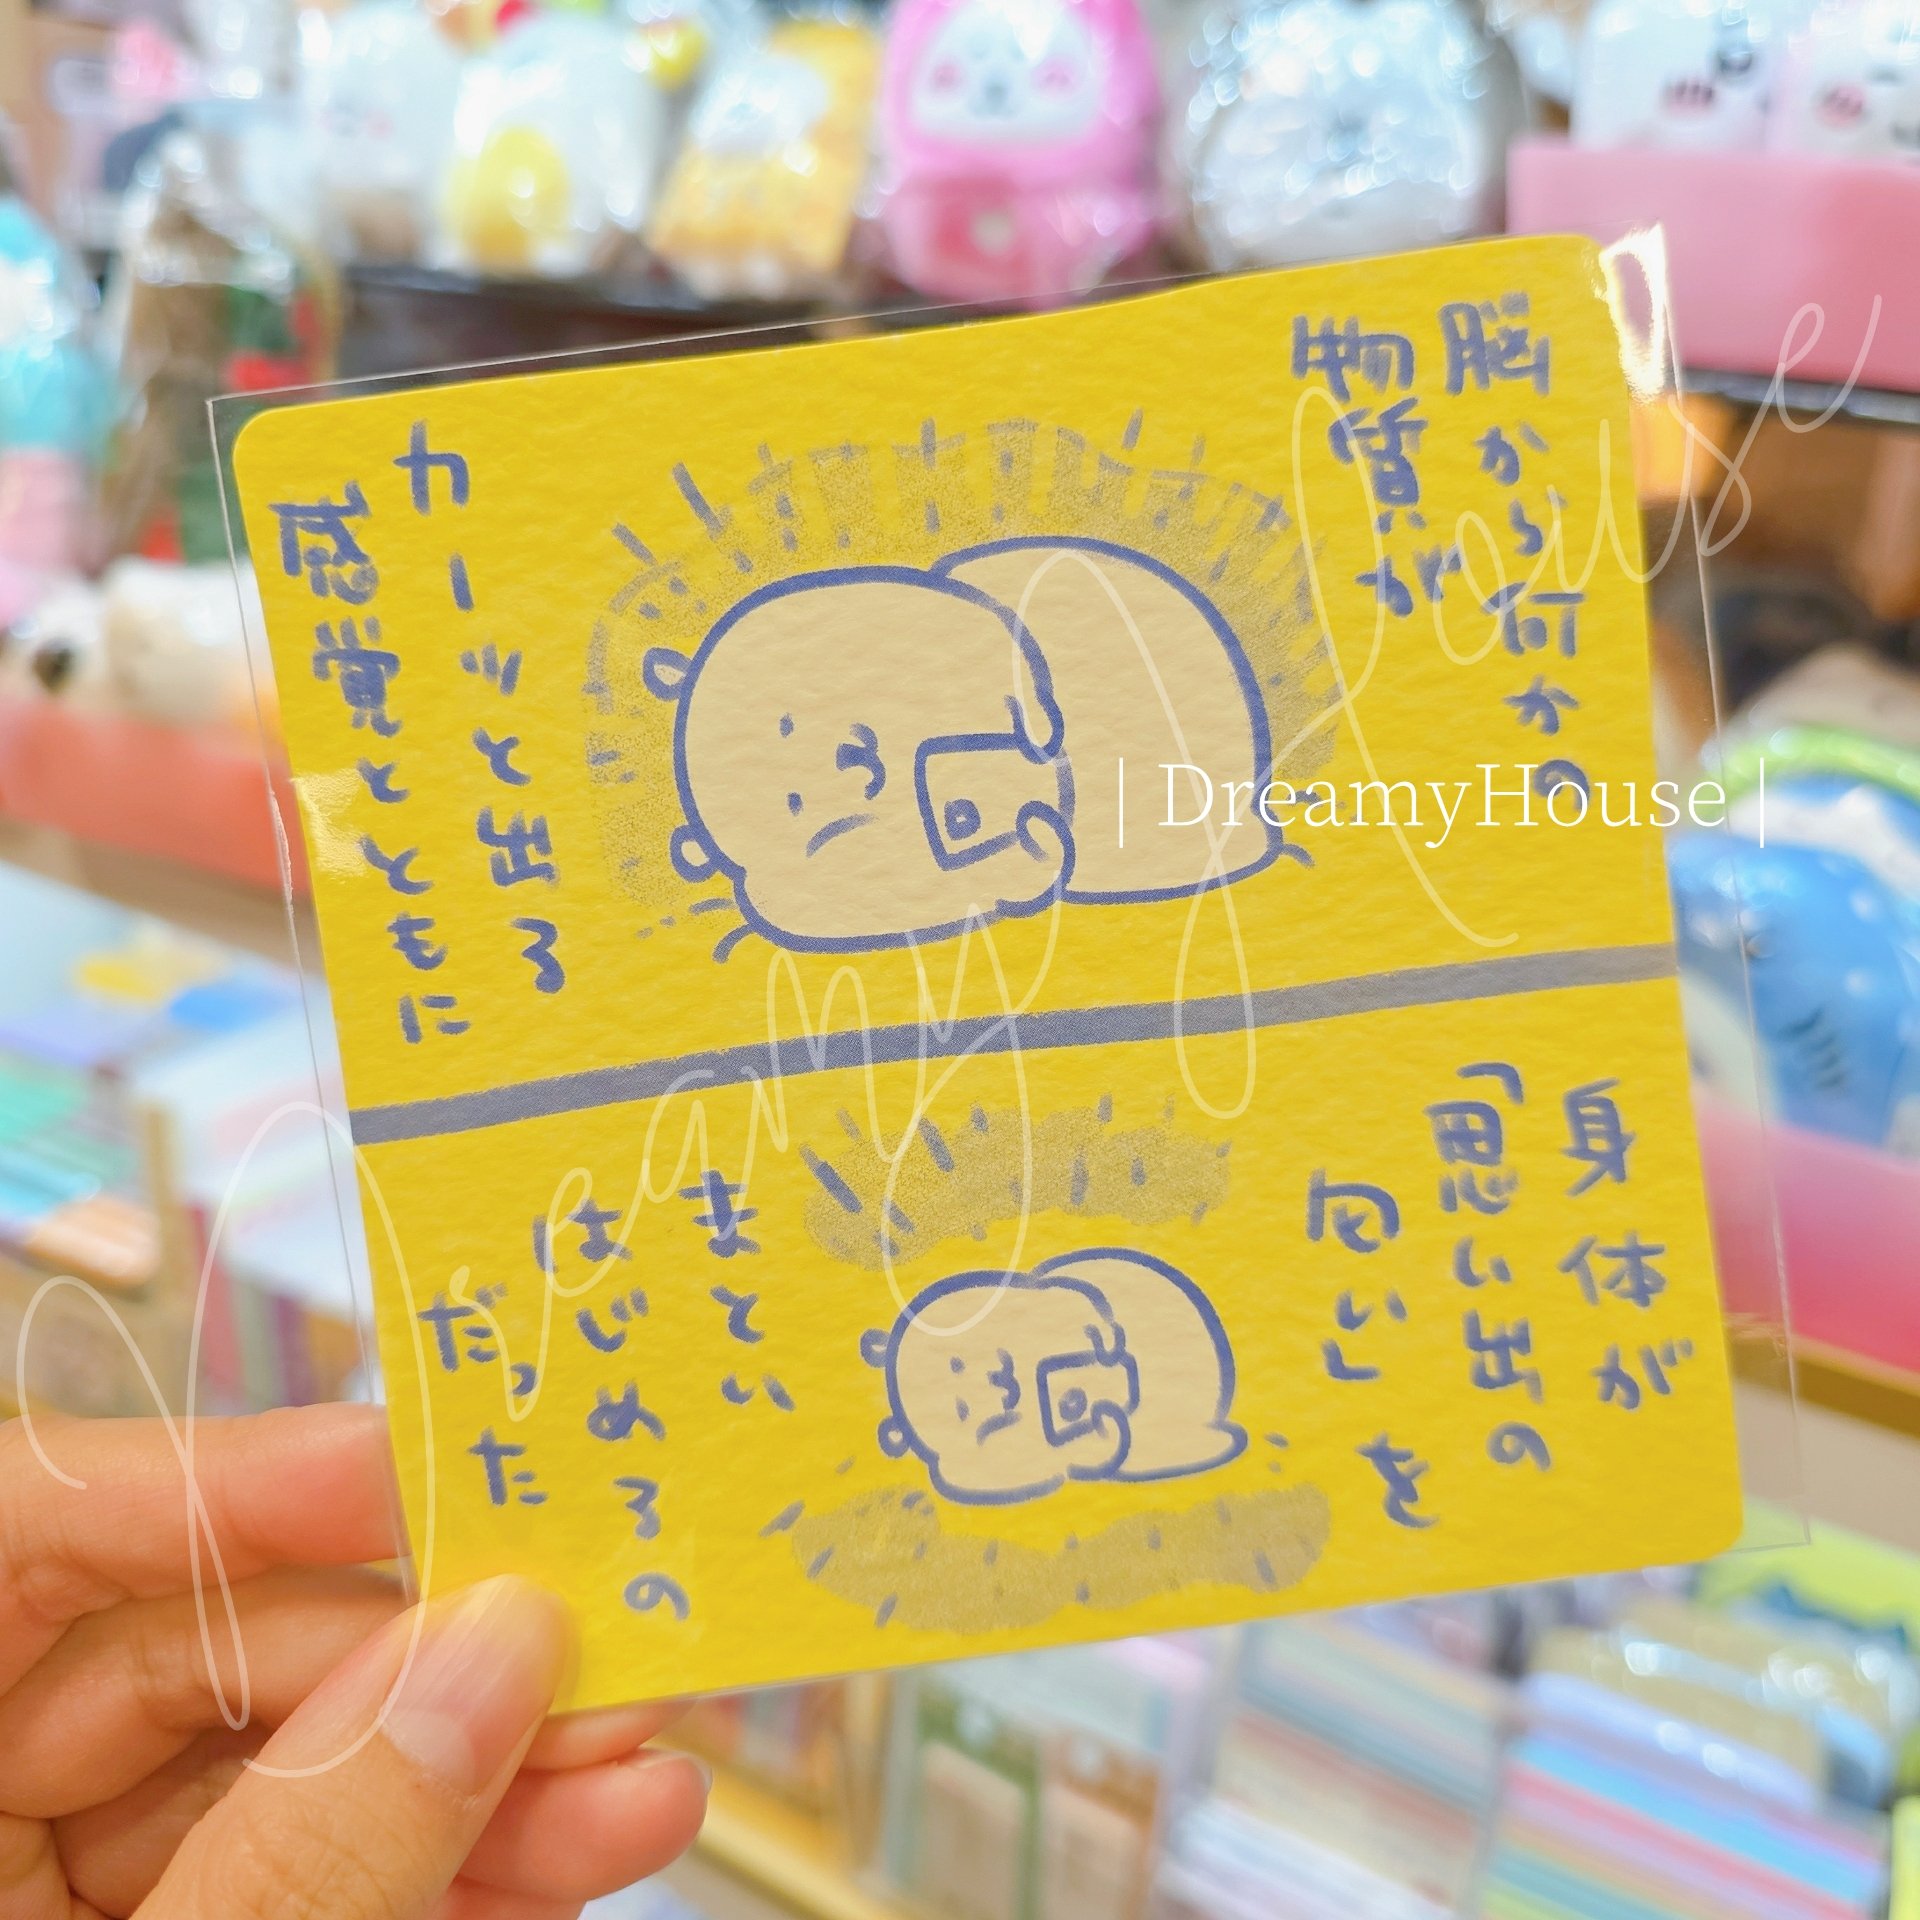 脳から何かの
物質が
カーッと出る
感覚とともに
身体が
「思い出の
匂い」を
まとい
はじめるの
だった
| DreamyHouse |
Dreamy House